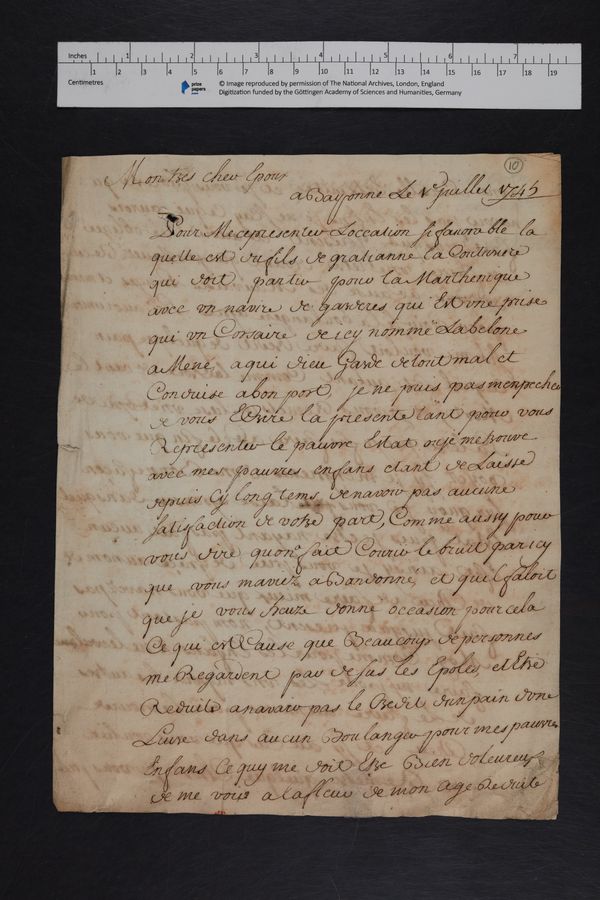 Inches 1 2 3 4 5 6 7
Centimetres 1 2 3 4 5 6 7 8 9 10 11 12 13 14 15 16 17 18 19
prize papers
© Image reproduced by permission of The National Archives, London, England
Digitization funded by the Göttingen Academy of Sciences and Humanities, Germany
10
Mon tres cher Epoux
a Bayonne Le 1e juillet 1745
Pour Me representer Loccation si favorable la
quelle est du fils de gratianne la Couturiere
qui doit partir pour la Marthenique
avec un navire de qui Est une prise
qui un Corsaire de icy nommé Labelone
a Mené, a qui dieu Garde de tout mal et
Conduise a bon port, je ne puis pas menpecher
de vous Ecrire la presente tant pour vous
Representer le pauvre Estat ou je me trouve
avec mes pauvres enfans etant de Laissé
depuis Cy long tems, de navoir pas aucune
satisfaction de votre part, Comme aussy pour
vous dire quon a fait Courir le bruit par icy
que vous maviez aBandonné, et quil faloit
que je vous heuze donne occasion pour cela
Ce qui est Cause que Beaucoup de personnes
me Regardent par desus les Epoles, et Etre
Reduite a navoir pas le Credit dun pain dune
Livre dans aucun Boulanger pour mes pauvres
Enfans Ce quy me doit Etre Bien doleureux
de me voir a la fleur de mon age Reduite